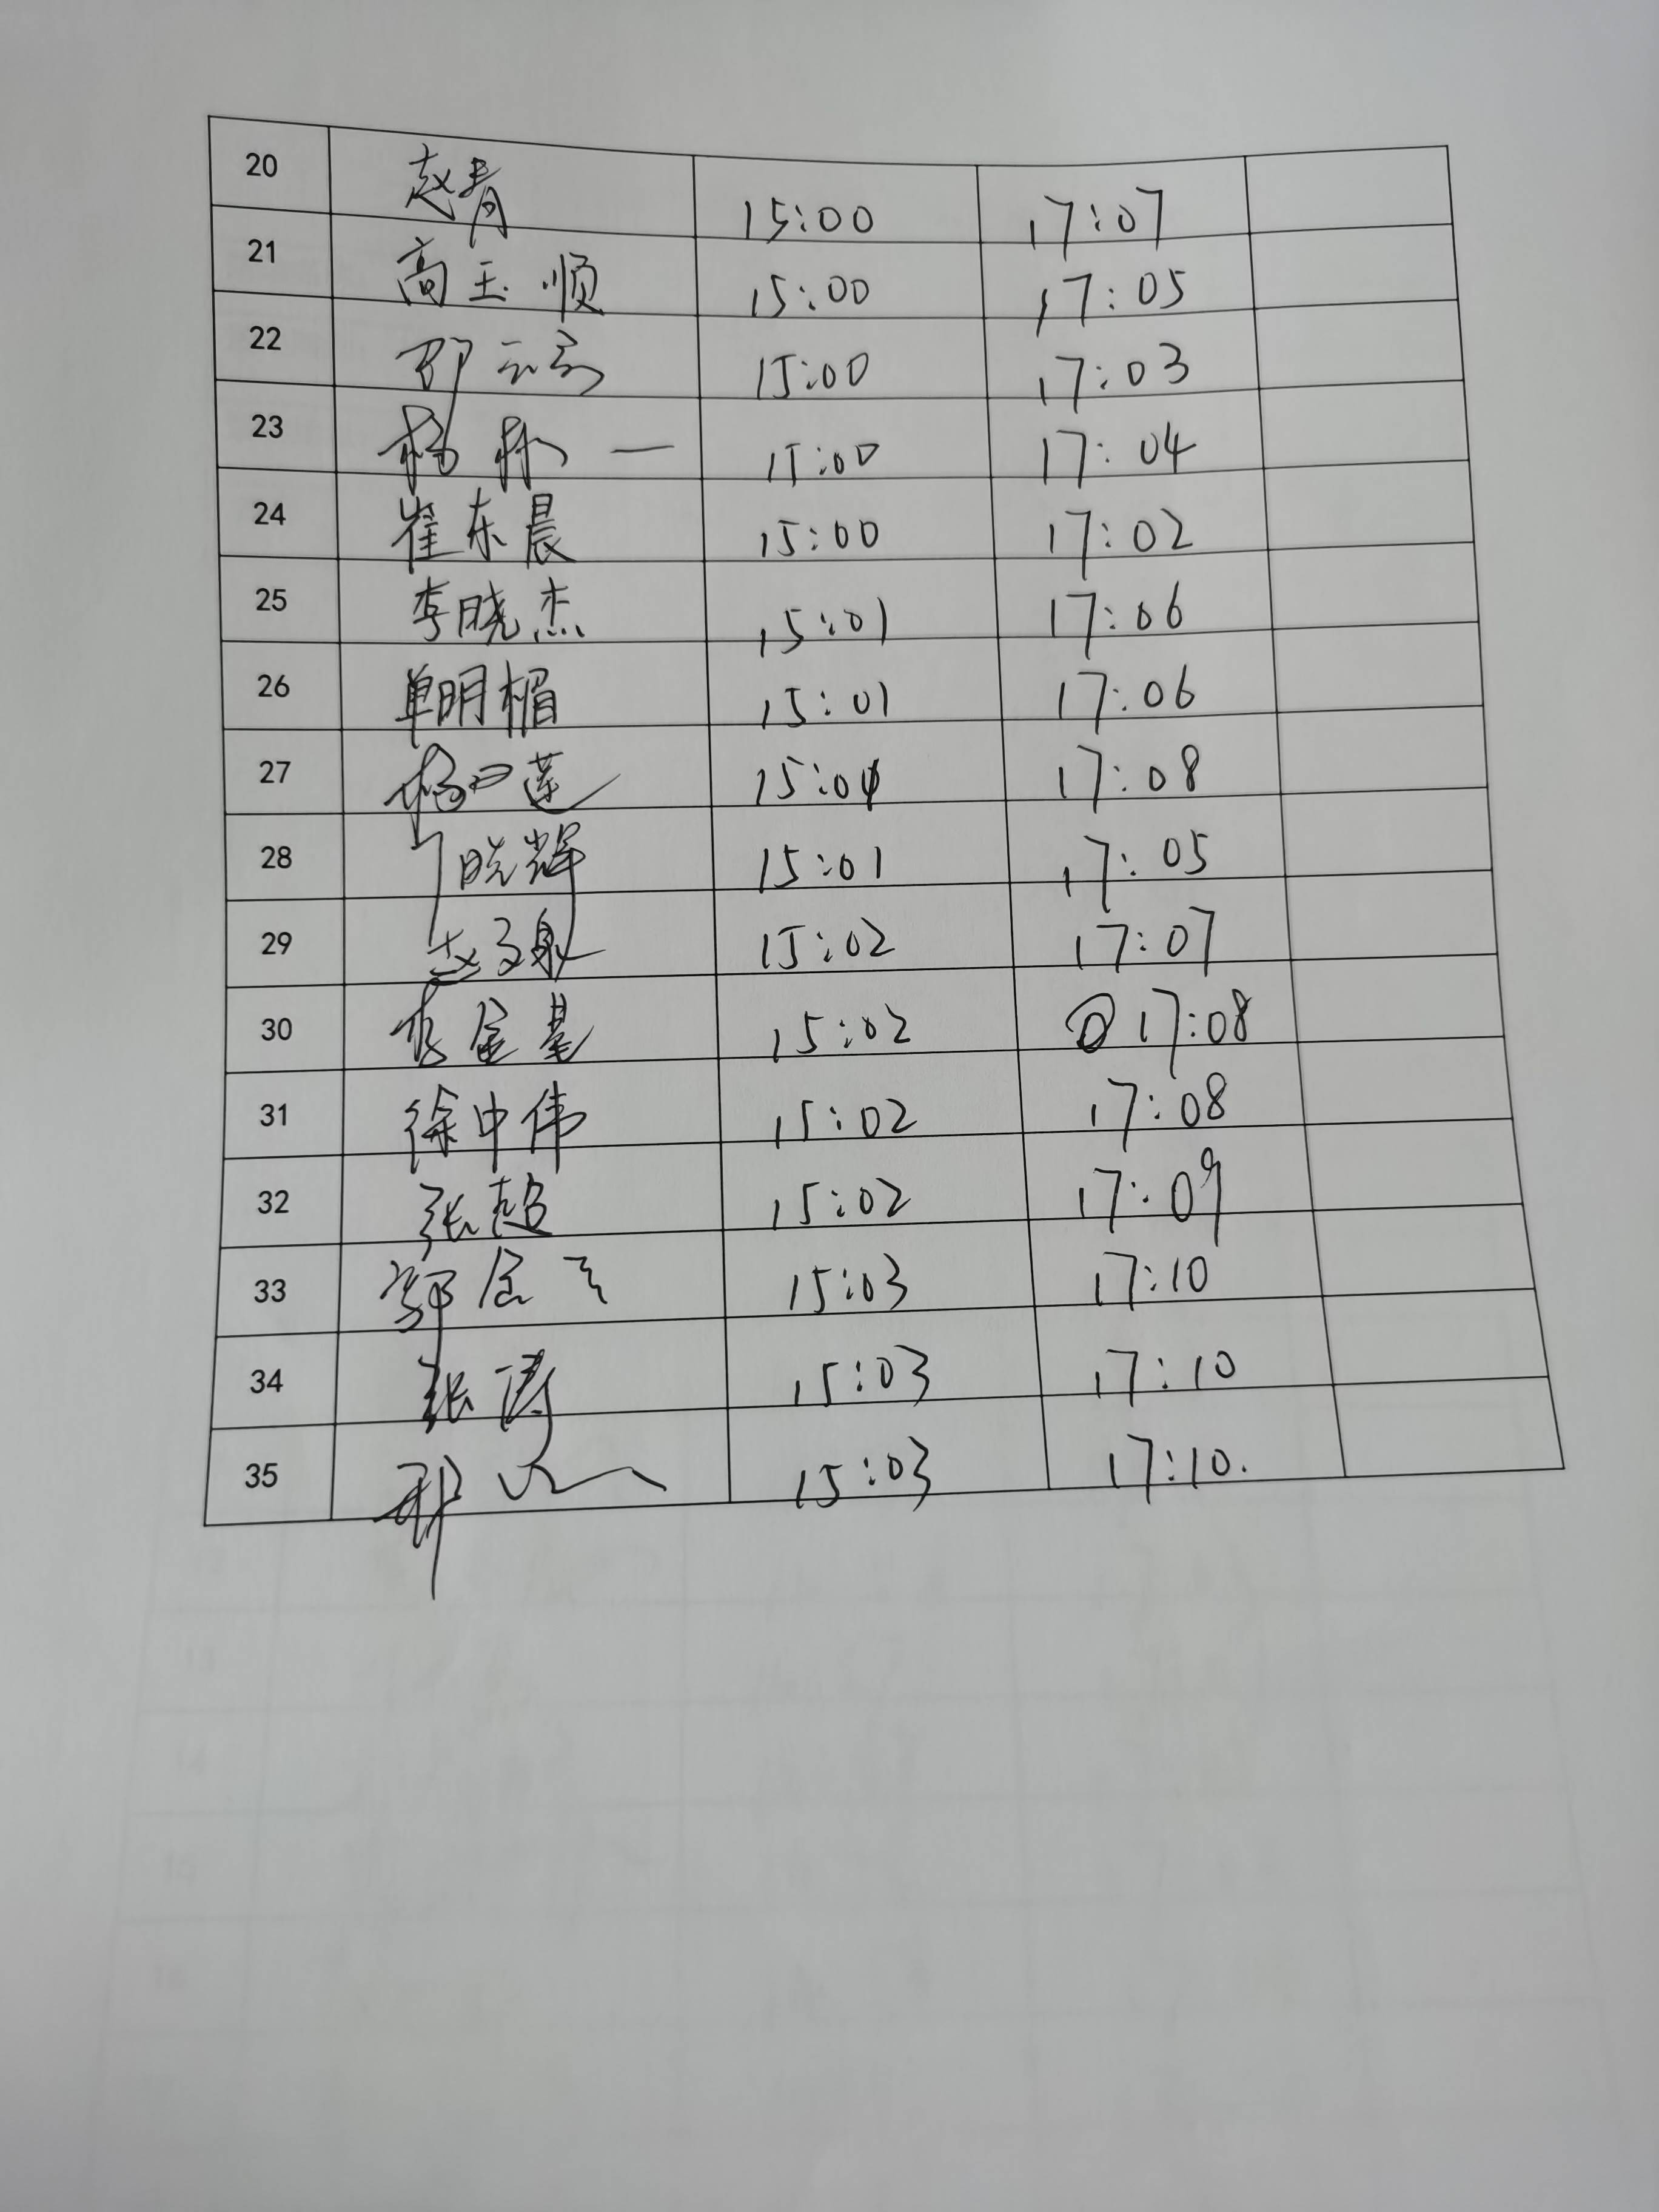 20 赵青 15:00 17:07
21 高玉顺 15:00 17:05
22 15:00 17:03
23 杨 一 15:00 17:04
24 崔东晨 15:00 17:02
25 李晓杰 15:01 17:06
26 单明楣 15:01 17:06
27 杨 莲 15:01 17:08
28 晓辉 15:01 17:05
29 赵 15:02 17:07
30 金 15:02 17:08
31 徐中伟 15:02 17:08
32 张超 15:02 17:09
33 郭 15:03 17:10
34 张涛 15:03 17:10
35 15:03 17:10.